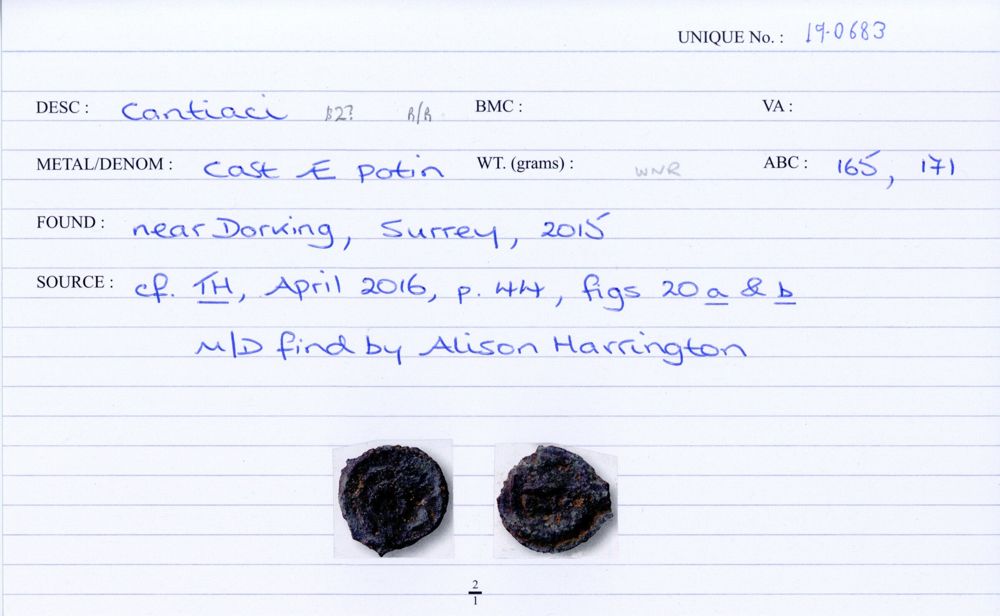 UNIQUE No. : 19.0683
DESC : Cantiaci B2? R/R BMC : VA :
METAL/DENOM : Cast Æ potin WT. (grams) : WNR ABC : 165, 171
FOUND : near Dorking, Surrey, 2015
SOURCE : cf. TH, April 2016, p. 44, figs 20 a & b
M/D find by Alison Harrington
2
1